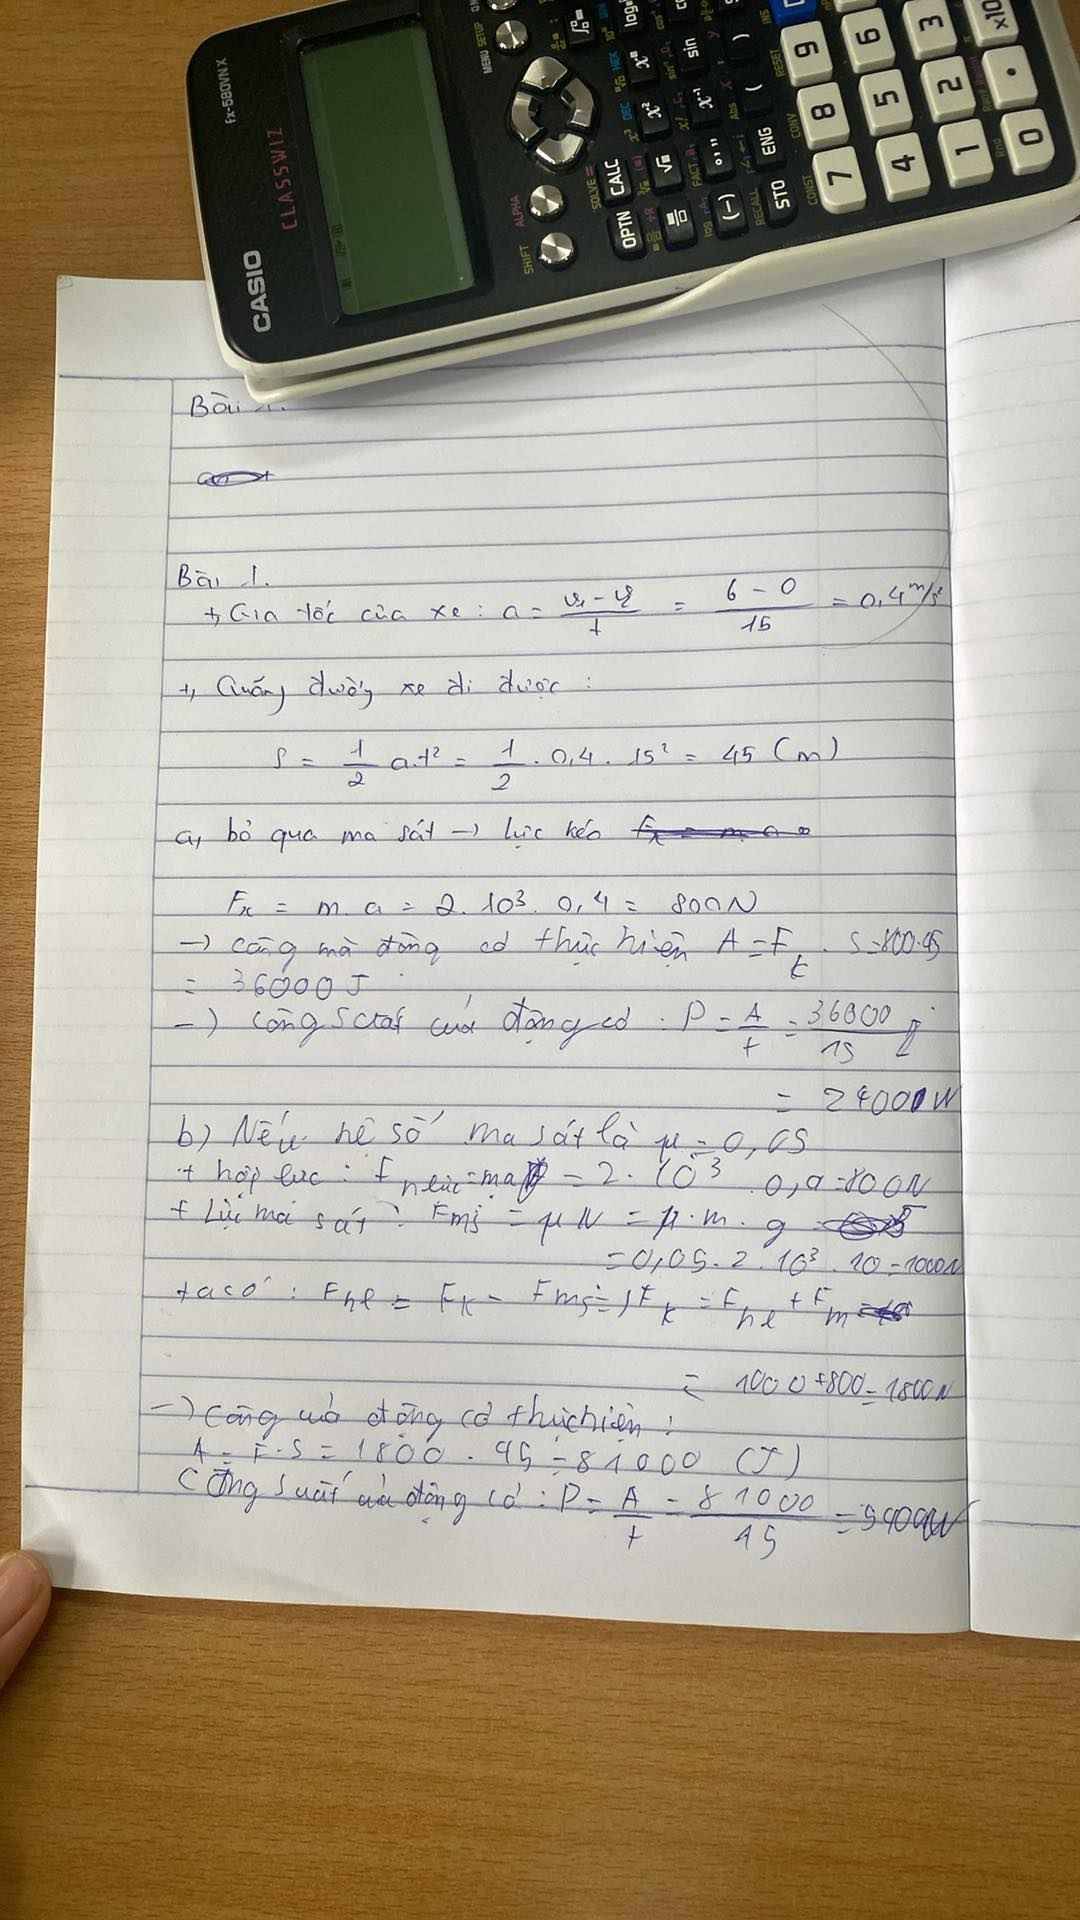 fx-580VNX
CLASSWIZ
CASIO
MENU SETUP
SHIFT
ALPHA
OPTN CALC
SOLVE =
STO ENG
RECALL
CONST CONV RESET INS
(-) sin ( )
7 8 9
4 5 6
1 2 3
0 . ×10
Bài 1.
Bài 1.
+, Gia tốc của xe : a = (v₁ - v₂)/t = (6 - 0)/15 = 0,4 m/s²
+, Quãng đường xe đi được :
S = 1/2 a.t² = 1/2 . 0,4 . 15² = 45 (m)
a, bỏ qua ma sát → lực kéo
Fₖ = m. a = 2. 10³. 0,4 = 800N
→ công mà động cơ thực hiện A = Fₖ . S = 800.45
= 36000 J
→) Công suất của động cơ : P = A/t = 36000/15
= 2400 W
b) Nếu hệ số ma sát là μ = 0,05
+ hợp lực : F = ma = 2. 10³ . 0,4 = 800N
+ Lực ma sát : Fms = μN = μ. m. g
= 0,05. 2. 10³ . 10 = 1000N
ta có : Fhl = Fk - Fms => Fk = Fhl + Fm
= 1000 + 800 = 1800N
→) Công của động cơ thực hiện :
A = F. S = 1800 . 45 = 81000 (J)
Công suất của động cơ : P = A/t = 81000/15 = 5400W